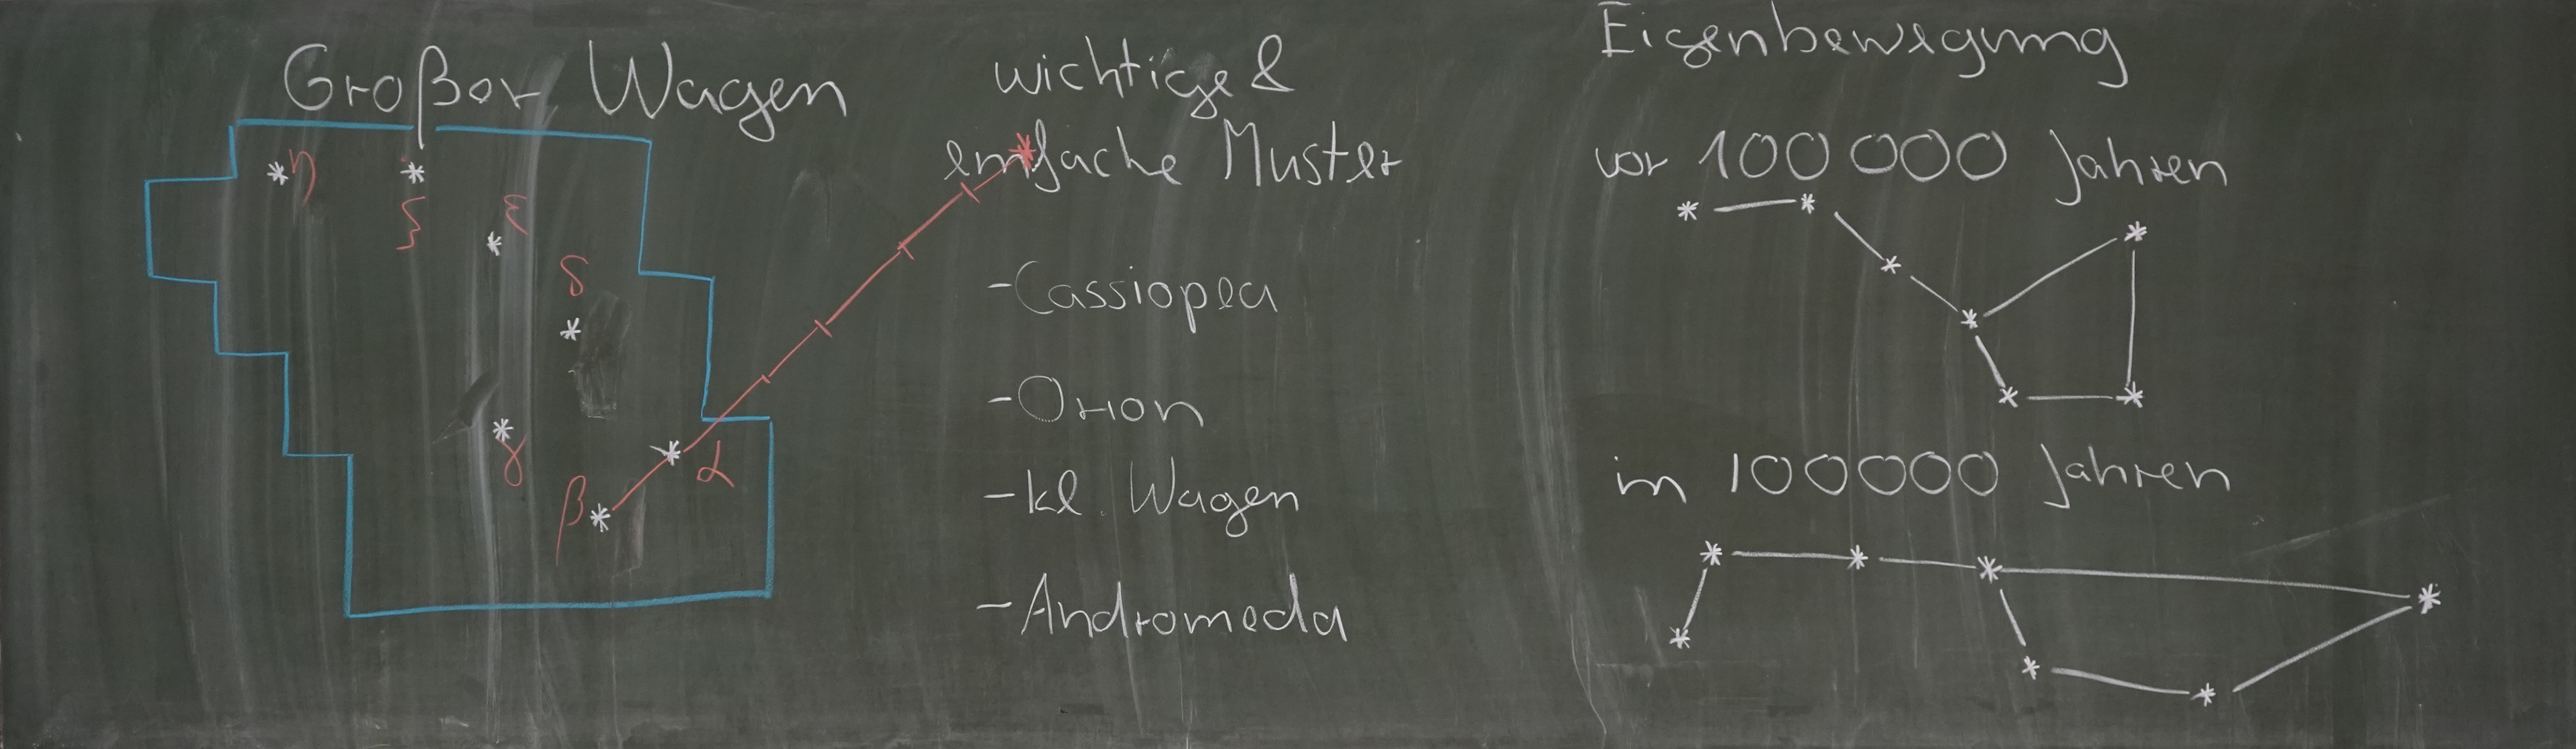 Großer Wagen
η
ζ
ε
δ
γ
β
α
wichtige &
einfache Muster
- Cassiopea
- Orion
- kl. Wagen
- Andromeda
Eigenbewegung
vor 100 000 Jahren
in 100000 Jahren